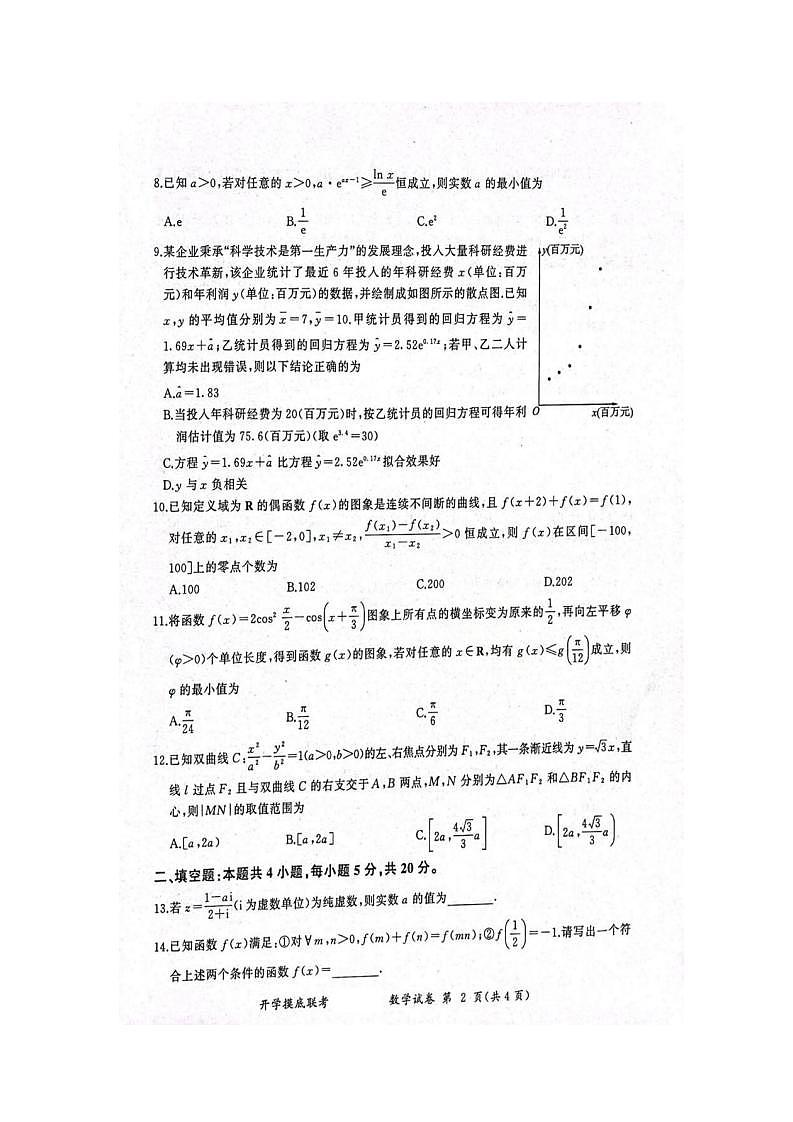 8.已知 a>0,若对任意的 x>0,a·e^{ax-1}≥\frac{ln x}{e}恒成立,则实数 a 的最小值为
A.e B.\frac{1}{e} C.e² D.\frac{1}{e²}
9.某企业秉承“科学技术是第一生产力”的发展理念,投入大量科研经费进
行技术革新,该企业统计了最近 6 年投入的年科研经费 x(单位:百万
元)和年利润 y(单位:百万元)的数据,并绘制成如图所示的散点图.已知
x,y 的平均值分别为 \bar{x}=7,\bar{y}=10.甲统计员得到的回归方程为 \hat{y}=
1.69x+\hat{a};乙统计员得到的回归方程为 \hat{y}=2.52e^{0.17x};若甲、乙二人计
算均未出现错误,则以下结论正确的为
A.\hat{a}=1.83
B.当投入年科研经费为 20(百万元)时,按乙统计员的回归方程可得年利
润估计值为 75.6(百万元)(取 e^{3.4}=30)
C.方程 \hat{y}=1.69x+\hat{a} 比方程 \hat{y}=2.52e^{0.17x}拟合效果好
D.y 与 x 负相关
y(百万元)
O x(百万元)
10.已知定义域为 R 的偶函数 f(x)的图象是连续不间断的曲线,且 f(x+2)+f(x)=f(1),
对任意的 x₁,x₂∈[-2,0],x₁≠x₂,\frac{f(x₁)-f(x₂)}{x₁-x₂}>0 恒成立,则 f(x)在区间[-100,
100]上的零点个数为
A.100 B.102 C.200 D.202
11.将函数 f(x)=2cos² \frac{x}{2}-cos(x+\frac{π}{3})图象上所有点的横坐标变为原来的\frac{1}{2},再向左平移 φ
(φ>0)个单位长度,得到函数 g(x)的图象,若对任意的 x∈R,均有 g(x)≤g(\frac{π}{12})成立,则
φ 的最小值为
A.\frac{π}{24} B.\frac{π}{12} C.\frac{π}{6} D.\frac{π}{3}
12.已知双曲线 C:\frac{x²}{a²}-\frac{y²}{b²}=1(a>0,b>0)的左、右焦点分别为 F₁,F₂,其一条渐近线为 y=√3x,直
线 l 过点 F₂ 且与双曲线 C 的右支交于 A,B 两点,M,N 分别为△AF₁F₂ 和△BF₁F₂ 的内
心,则|MN|的取值范围为
A.[a,2a) B.[a,2a] C.[2a,\frac{4√3}{3}a] D.[2a,\frac{4√3}{3}a)
二、填空题:本题共 4 小题,每小题 5 分,共 20 分。
13.若 z=\frac{1-ai}{2+i}(i 为虚数单位)为纯虚数,则实数 a 的值为______.
14.已知函数 f(x)满足:①对∀m,n>0,f(m)+f(n)=f(mn);②f(\frac{1}{2})=-1.请写出一个符
合上述两个条件的函数 f(x)=______.
开学摸底联考 数学试卷 第 2 页(共 4 页)